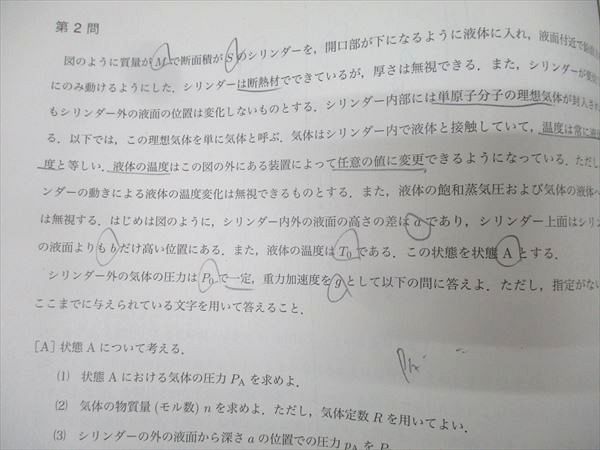 第2問
図のように質量が M で断面積が S のシリンダーを，開口部が下になるように液体に入れ，液面付近で
にのみ動けるようにした．シリンダーは断熱材でできているが，厚さは無視できる．また，シリンダーが
もシリンダー外の液面の位置は変化しないものとする．シリンダー内部には単原子分子の理想気体が封入され
る．以下では，この理想気体を単に気体と呼ぶ．気体はシリンダー内で液体と接触していて，温度は常に液
度と等しい．液体の温度はこの図の外にある装置によって任意の値に変更できるようになっている．ただし
ンダーの動きによる液体の温度変化は無視できるものとする．また，液体の飽和蒸気圧および気体の液体へ
は無視する．はじめは図のように，シリンダー内外の液面の高さの差は a であり，シリンダー上面はシリン
の液面よりも b だけ高い位置にある．また，液体の温度は T0 である．この状態を状態 A とする．
シリンダー外の気体の圧力は P0 で一定，重力加速度を g として以下の問に答えよ．ただし，指定がない
ここまでに与えられている文字を用いて答えること．
[A] 状態 A について考える．
(1) 状態 A における気体の圧力 PA を求めよ．
(2) 気体の物質量（モル数）n を求めよ．ただし，気体定数 R を用いてよい．
(3) シリンダーの外の液面から深さ a の位置での圧力 pA を P